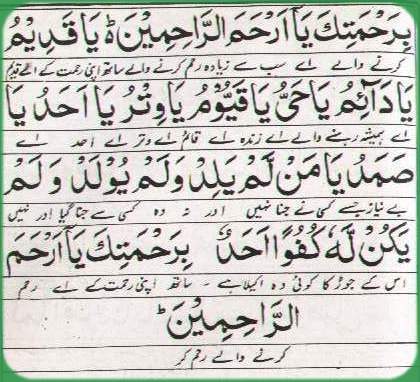 بِرَحْمَتِكَ يَآ اَرْحَمَ الرَّاحِمِيْنَ ؕ يَا قَدِيْمُ
کرنے والے اے سب سے زیادہ رحم کرنے والے ساتھ اپنی رحمت کے اے قدیم
يَا دَآئِمُ يَا حَىُّ يَا قَيُّوْمُ يَا وِتْرُ يَا اَحَدُ يَا
اے ہمیشہ رہنے والے اے زندہ اے قائم اے وتر اے احد اے
صَمَدُ يَا مَنْ لَّمْ يَلِدْ وَلَمْ يُوْلَدْ وَلَمْ
بے نیاز جسے کسی نے جنا نہیں اور نہ وہ کسی سے جنا گیا اور نہیں
يَكُنْ لَّهٗ كُفُوًا اَحَدٌ بِرَحْمَتِكَ يَآ اَرْحَمَ
اس کے جوڑ کا کوئی وہ اکیلا ہے ۔ ساتھ اپنی رحمت کے اے رحم
الرَّاحِمِيْنَ ؕ
کرنے والے رحم کر